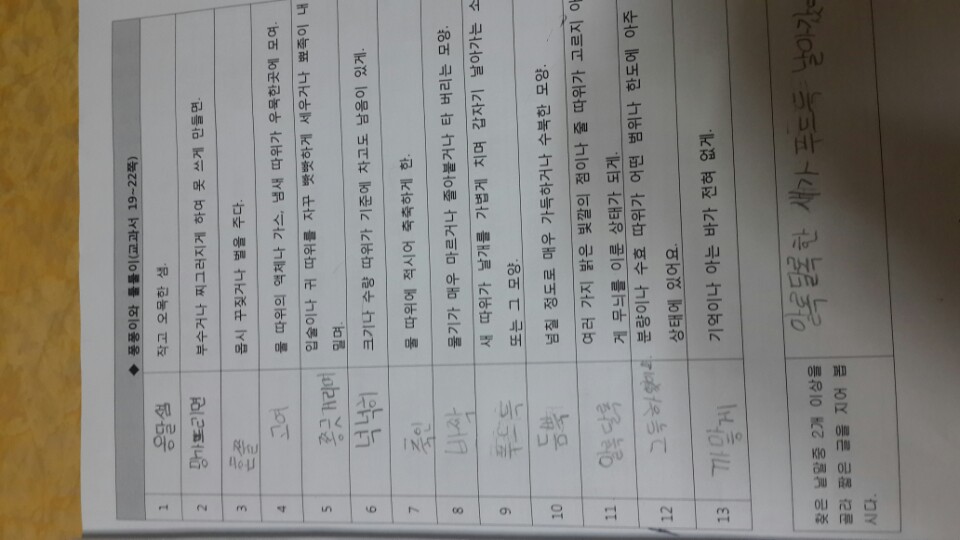 ◆ 퐁퐁이와 툴툴이(교과서 19~22쪽)
1 옹달샘 작고 오목한 샘.
2 망가뜨리면 부수거나 찌그러지게 하여 못 쓰게 만들면.
3 혼쭐 몹시 꾸짖거나 벌을 주다.
4 고여 물 따위의 액체나 가스, 냄새 따위가 우묵한곳에 모여.
5 쫑긋거리며 입술이나 귀 따위를 자꾸 빳빳하게 세우거나 뾰족이 내
밀며.
6 넉넉히 크기나 수량 따위가 기준에 차고도 남음이 있게.
7 축인 물 따위에 적시어 축축하게 한.
8 바짝 물기가 매우 마르거나 졸아붙거나 타 버리는 모양.
9 푸드득 새 따위가 날개를 가볍게 치며 갑자기 날아가는 소
또는 그 모양.
10 듬뿍 넘칠 정도로 매우 가득하거나 수북한 모양.
11 알록달록 여러 가지 밝은 빛깔의 점이나 줄 따위가 고르지 아
게 무늬를 이룬 상태가 되게.
12 그득하 분량이나 수효 따위가 어떤 범위나 한도에 아주
상태에 있어요.
13 까맣게 기억이나 아는 바가 전혀 없게.
찾은 낱말중 2개 이상을
골라 짧은 글을 지어 봅
시다.
알록달록한 새가 푸드득 날아갔